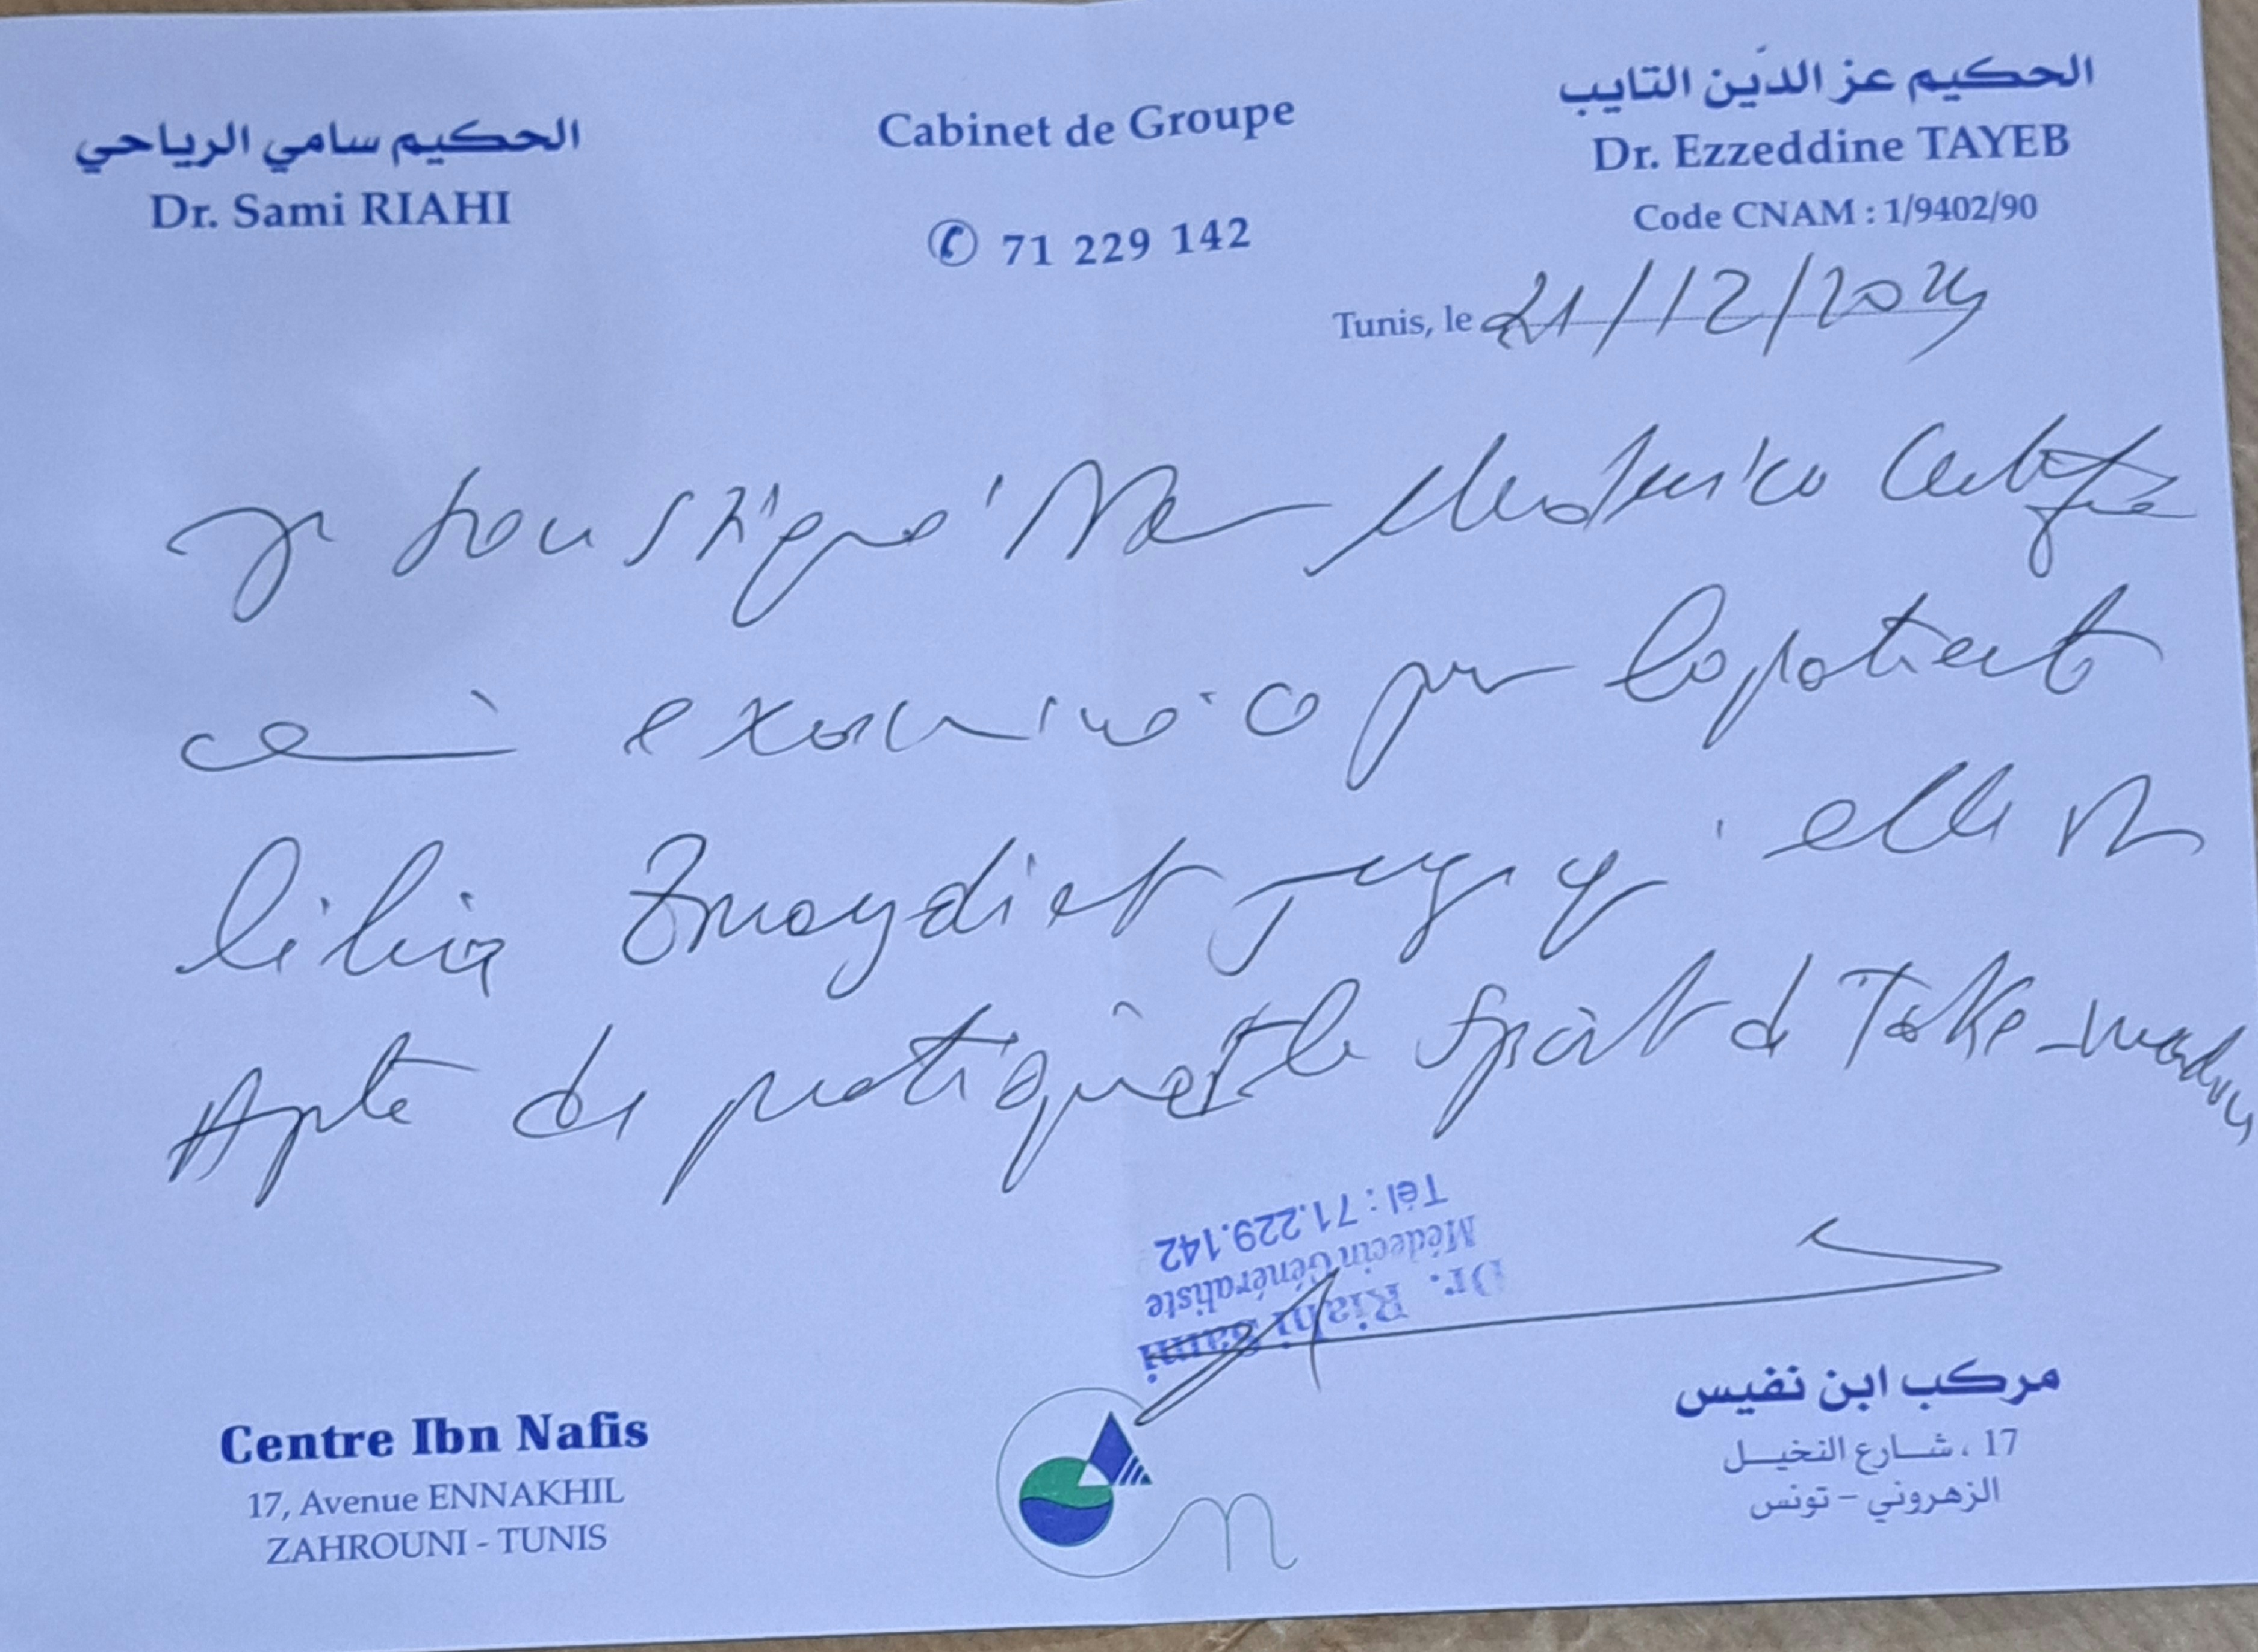 الحكيم سامي الرياحي
Dr. Sami RIAHI
Cabinet de Groupe
71 229 142
الحكيم عز الدّين التايب
Dr. Ezzeddine TAYEB
Code CNAM : 1/9402/90
Tunis, le 21/12/2024
Je soussigné certifie
examiné ce jour la patiente
lilia qu'elle est
Apte de pratiquer le sport d
Dr. Riahi Sami
Médecin Généraliste
Tél : 71.229.142
Centre Ibn Nafis
17, Avenue ENNAKHIL
ZAHROUNI - TUNIS
مركب ابن نفيس
17 ، شــارع النخيــل
الزهروني - تونس